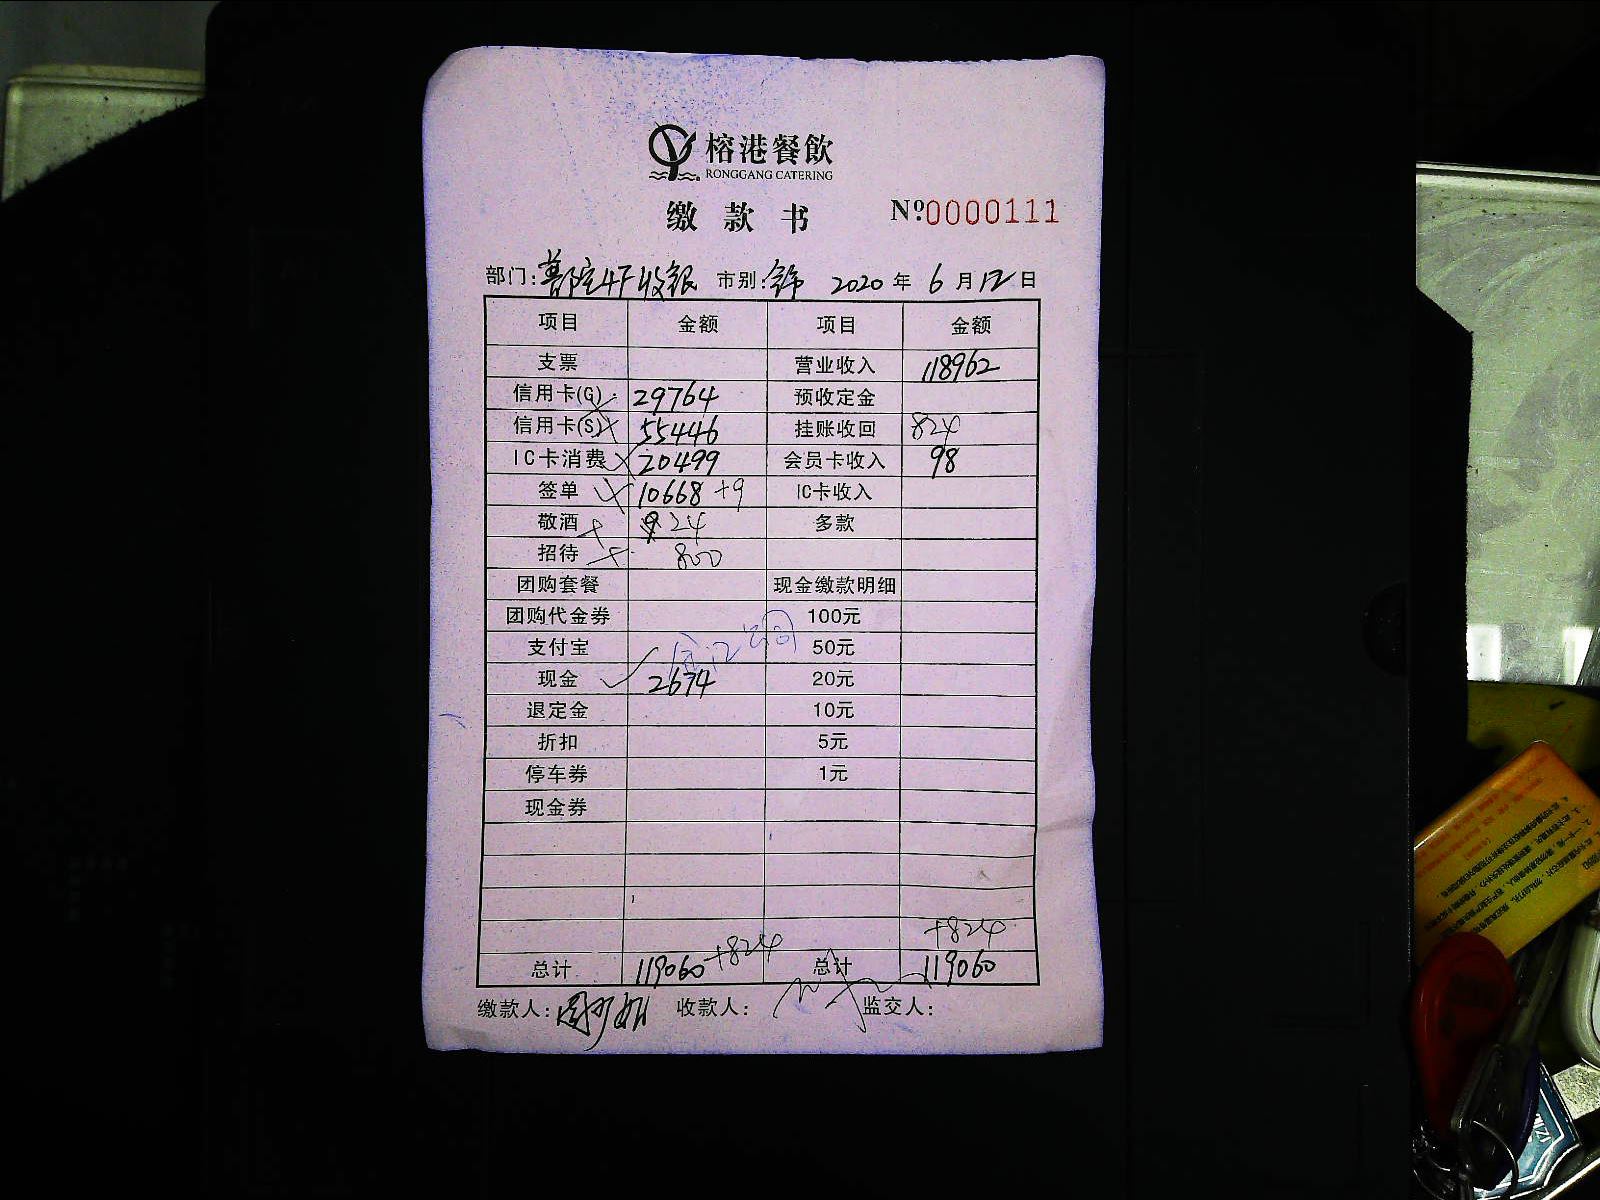 榕港餐飲
RONGGANG CATERING
缴款书 Nº0000111
部门: 4F收银 市别: 2020年6月12日
项目 金额 项目 金额
支票 营业收入 118962
信用卡(G) 29764 预收定金
信用卡(S) 55446 挂账收回 824
IC卡消费 20499 会员卡收入 98
签单 10668 +9 IC卡收入
敬酒 24 多款
招待 800
团购套餐 现金缴款明细
团购代金券 100元
支付宝 50元
现金 2674 20元
退定金 10元
折扣 5元
停车券 1元
现金券
+824
总计 119060 +824 总计 119060
缴款人: 收款人: 监交人: